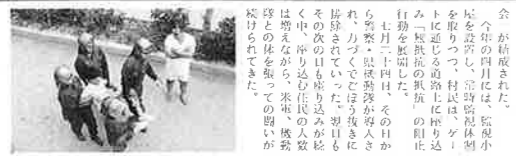 会」が結成された。
今年の四月には、監視小
屋を設置し、常時監視体制
を取りつつ、村民は、ゲー
トに通じる道路上に座り込
み「無抵抗の抵抗」の阻止
行動を展開した。
七月二十四日、その日か
ら警察・県機動隊が導入さ
れ、力づくでごぼう抜きに
排除されていった。翌日も
その次の日も座り込みが続
く中、座り込む住民の人数
は増えながら、米軍、機動
隊との体を張っての闘いが
続けられてきた。